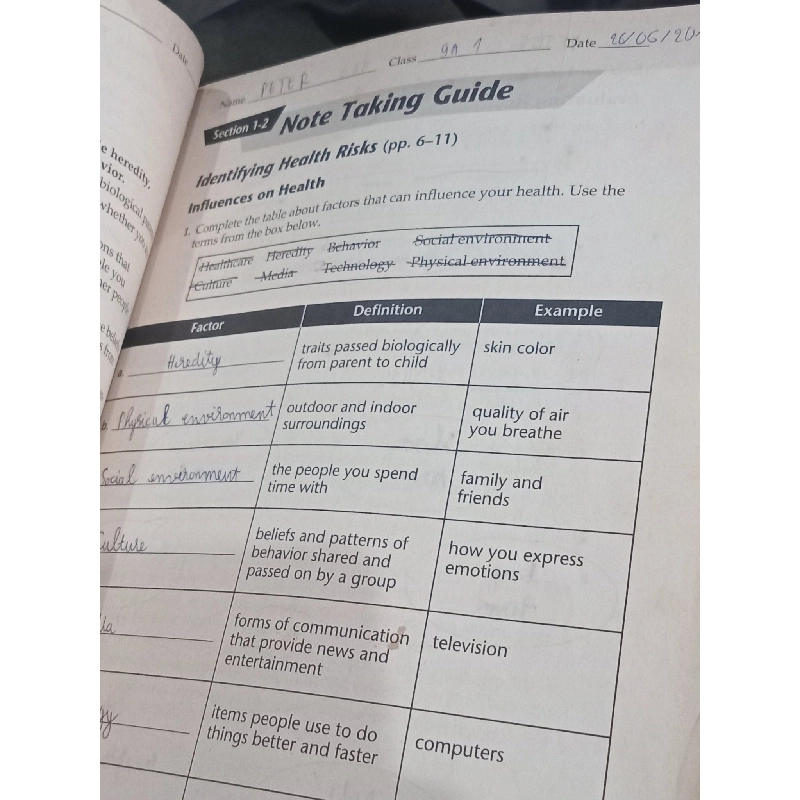 Date
e heredity,
vior.
biological
whether you
ons that
le you
er people
Name PETER Class 9A 1 Date 26/06/20
Section 1-2 Note Taking Guide
Identifying Health Risks (pp. 6–11)
Influences on Health
1. Complete the table about factors that can influence your health. Use the
terms from the box below.
Healthcare Heredity Behavior Social environment
Culture Media Technology Physical environment
Factor Definition Example
a. Heredity traits passed biologically skin color
from parent to child
b. Physical environment outdoor and indoor quality of air
surroundings you breathe
Social environment the people you spend family and
time with friends
ulture beliefs and patterns of how you express
behavior shared and emotions
passed on by a group
ia forms of communication television
that provide news and
entertainment
gy items people use to do computers
things better and faster